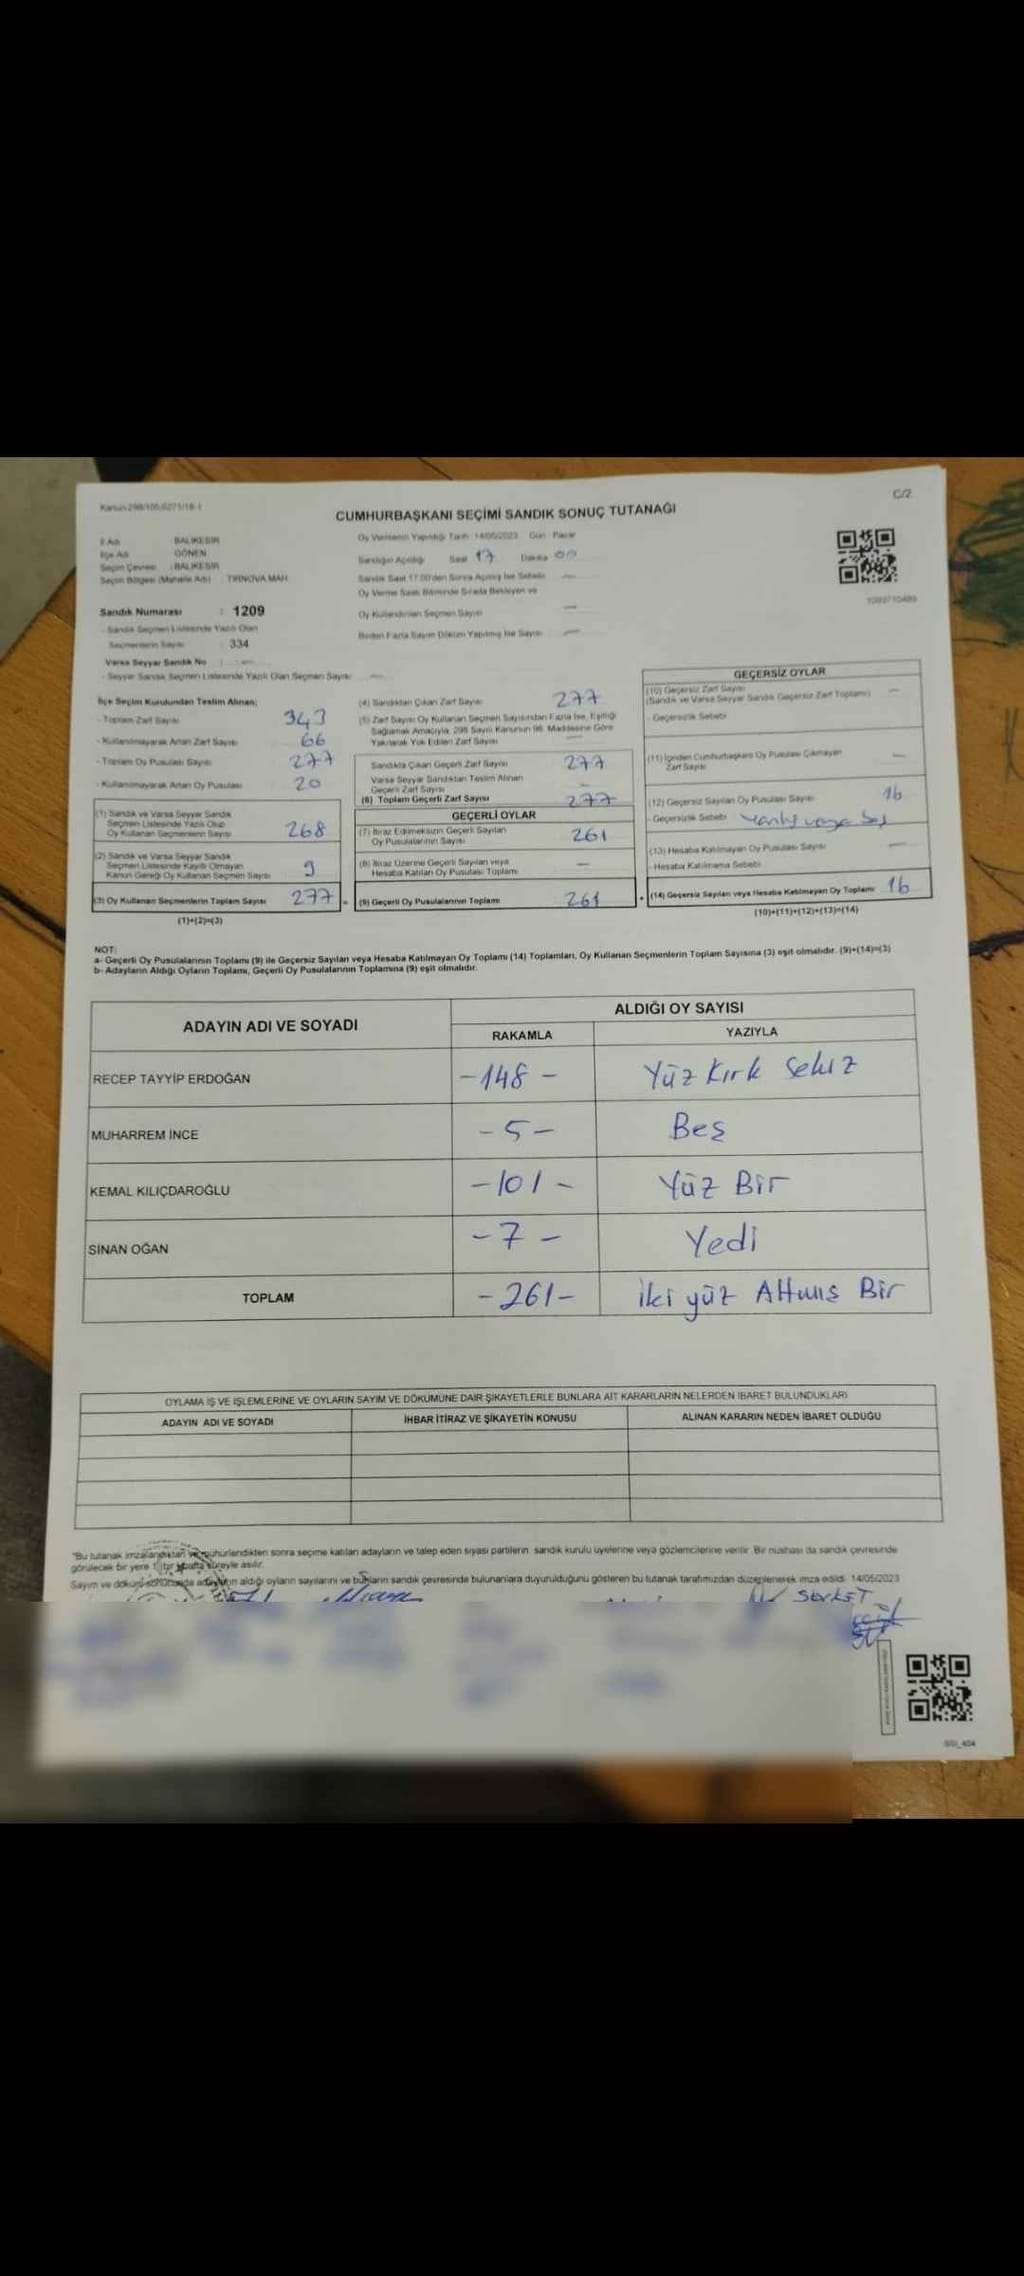 Kanun 298/105,6271/18-1
C/2
CUMHURBAŞKANI SEÇİMİ SANDIK SONUÇ TUTANAĞI
İl Adı : BALIKESİR
İlçe Adı : GÖNEN
Seçim Çevresi : BALIKESİR
Seçim Bölgesi (Mahalle Adı) : TIRNOVA MAH.
Sandık Numarası : 1209
- Sandık Seçmen Listesinde Yazılı Olan
Seçmenlerin Sayısı : 334
Varsa Seyyar Sandık No : —
- Seyyar Sandık Seçmen Listesinde Yazılı Olan Seçmen Sayısı : —
Oy Vermenin Yapıldığı Tarih 14/05/2023 Gün : Pazar
Sandığın Açıldığı Saat 17 Dakika 00
Sandık Saat 17.00'den Sonra Açılmış İse Sebebi —
Oy Verme Saati Bitiminde Sırada Bekleyen ve
Oy Kullandırılan Seçmen Sayısı —
Birden Fazla Sayım Döküm Yapılmış İse Sayısı —
İlçe Seçim Kurulundan Teslim Alınan;
- Toplam Zarf Sayısı 343
- Kullanılmayarak Artan Zarf Sayısı 66
- Toplam Oy Pusulası Sayısı 277
- Kullanılmayarak Artan Oy Pusulası 20
(1) Sandık ve Varsa Seyyar Sandık
Seçmen Listesinde Yazılı Olup
Oy Kullanan Seçmenlerin Sayısı 268
(2) Sandık ve Varsa Seyyar Sandık
Seçmen Listesinde Kayıtlı Olmayan
Kanun Gereği Oy Kullanan Seçmen Sayısı 9
(3) Oy Kullanan Seçmenlerin Toplam Sayısı 277 =
(1)+(2)=(3)
(4) Sandıktan Çıkan Zarf Sayısı 277
(5) Zarf Sayısı Oy Kullanan Seçmen Sayısından Fazla İse, Eşitliği
Sağlamak Amacıyla, 298 Sayılı Kanunun 98. Maddesine Göre
Yakılarak Yok Edilen Zarf Sayısı —
Sandıkta Çıkan Geçerli Zarf Sayısı 277
Varsa Seyyar Sandıktan Teslim Alınan
Geçerli Zarf Sayısı —
(6) Toplam Geçerli Zarf Sayısı 277
GEÇERLİ OYLAR
(7) İtiraz Edilmeksizin Geçerli Sayılan
Oy Pusulalarının Sayısı 261
(8) İtiraz Üzerine Geçerli Sayılan veya
Hesaba Katılan Oy Pusulası Toplamı —
(9) Geçerli Oy Pusulalarının Toplamı 261 +
GEÇERSİZ OYLAR
(10) Geçersiz Zarf Sayısı —
(Sandık ve Varsa Seyyar Sandık Geçersiz Zarf Toplamı)
- Geçersizlik Sebebi
(11) İçinden Cumhurbaşkanı Oy Pusulası Çıkmayan
Zarf Sayısı —
(12) Geçersiz Sayılan Oy Pusulası Sayısı 16
- Geçersizlik Sebebi
(13) Hesaba Katılmayan Oy Pusulası Sayısı —
- Hesaba Katılmama Sebebi
(14) Geçersiz Sayılan veya Hesaba Katılmayan Oy Toplamı 16
(10)+(11)+(12)+(13)=(14)
NOT:
a- Geçerli Oy Pusulalarının Toplamı (9) ile Geçersiz Sayılan veya Hesaba Katılmayan Oy Toplamı (14) Toplamları, Oy Kullanan Seçmenlerin Toplam Sayısına (3) eşit olmalıdır. (9)+(14)=(3)
b- Adayların Aldığı Oyların Toplamı, Geçerli Oy Pusulalarının Toplamına (9) eşit olmalıdır.
ADAYIN ADI VE SOYADI
ALDIĞI OY SAYISI
RAKAMLA YAZIYLA
RECEP TAYYİP ERDOĞAN -148- Yüz Kırk Sekiz
MUHARREM İNCE -5- Beş
KEMAL KILIÇDAROĞLU -101- Yüz Bir
SİNAN OĞAN -7- Yedi
TOPLAM -261- İki yüz Altmış Bir
OYLAMA İŞ VE İŞLEMLERİNE VE OYLARIN SAYIM VE DÖKÜMÜNE DAİR ŞİKAYETLERLE BUNLARA AİT KARARLARIN NELERDEN İBARET BULUNDUKLARI
ADAYIN ADI VE SOYADI İHBAR İTİRAZ VE ŞİKAYETİN KONUSU ALINAN KARARIN NEDEN İBARET OLDUĞU
"Bu tutanak imzalandıktan ve mühürlendikten sonra seçime katılan adayların ve talep eden siyasi partilerin sandık kurulu üyelerine veya gözlemcilerine verilir. Bir nüshası da sandık çevresinde
görülecek bir yere 1 (bir) hafta süreyle asılır.
Sayım ve döküm sonucunda adayların aldığı oyların sayılarını ve bunların sandık çevresinde bulunanlara duyurulduğunu gösteren bu tutanak tarafımızdan düzenlenerek imza edildi. 14/05/2023